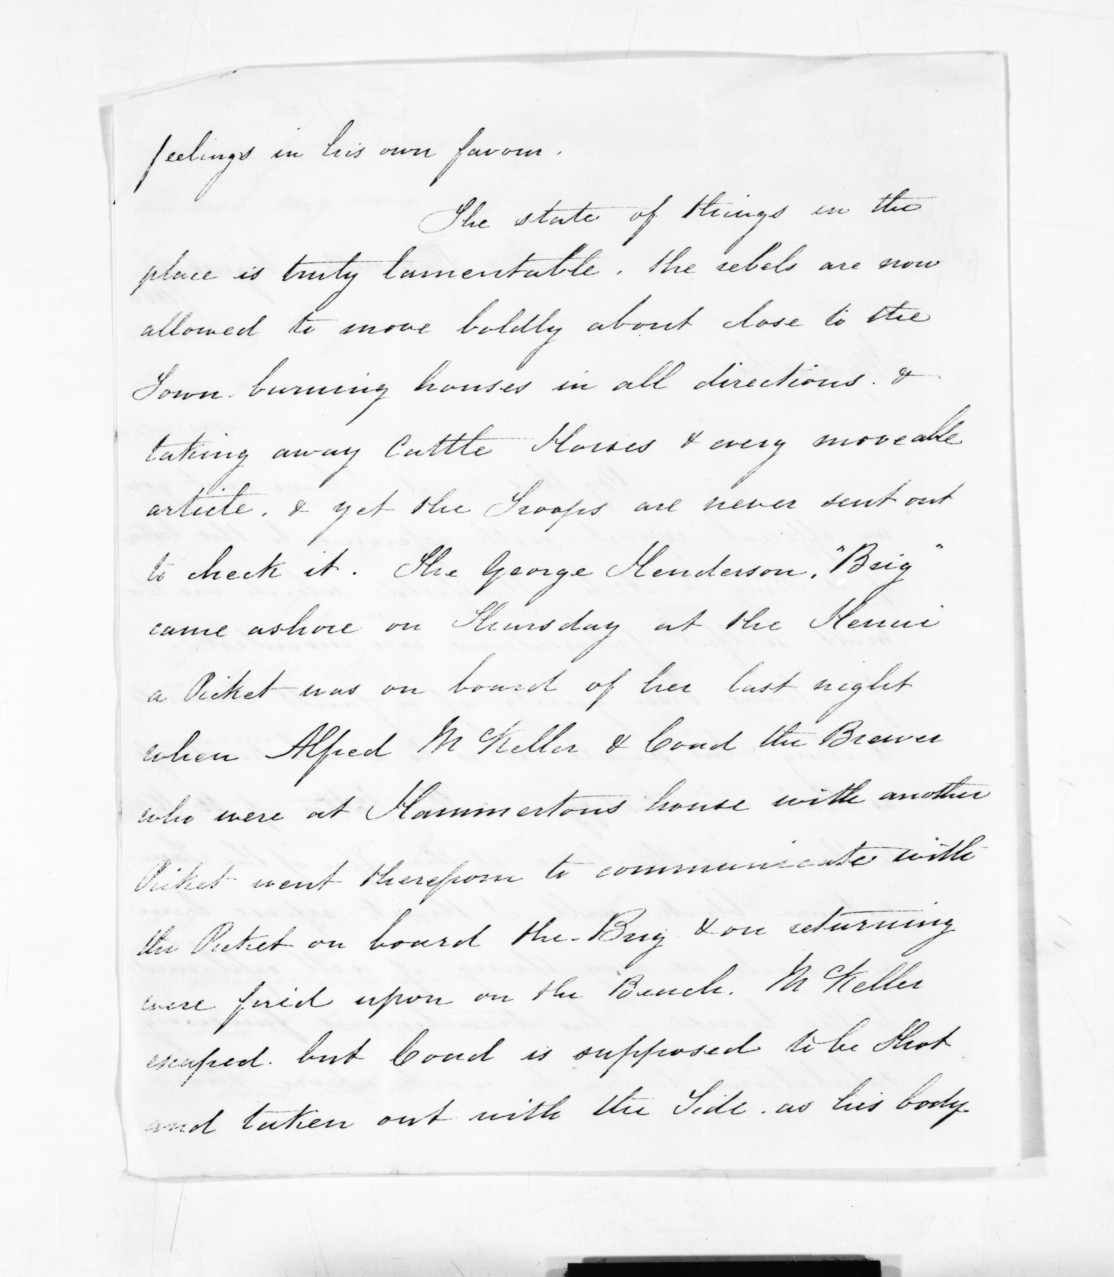 feelings in his own favour.
The state of things in the
place is truly lamentable. the rebels are now
allowed to move boldly about close to the
Town. burning houses in all directions. &
taking away Cattle Horses & every moveable
article. & yet the Troops are never sent out
to check it. The George Henderson. "Brig"
came ashore on Thursday at the Henui
a Picket was on board of her last night
when Alfred McKellar & Coad the Brewer
who were at Hammertons house with another
Picket went therefrom to communicate with
the Picket on board the Brig & on returning
were fired upon on the Beach. McKellar
escaped. but Coad is supposed to be Shot
and taken out with the Tide. as his body